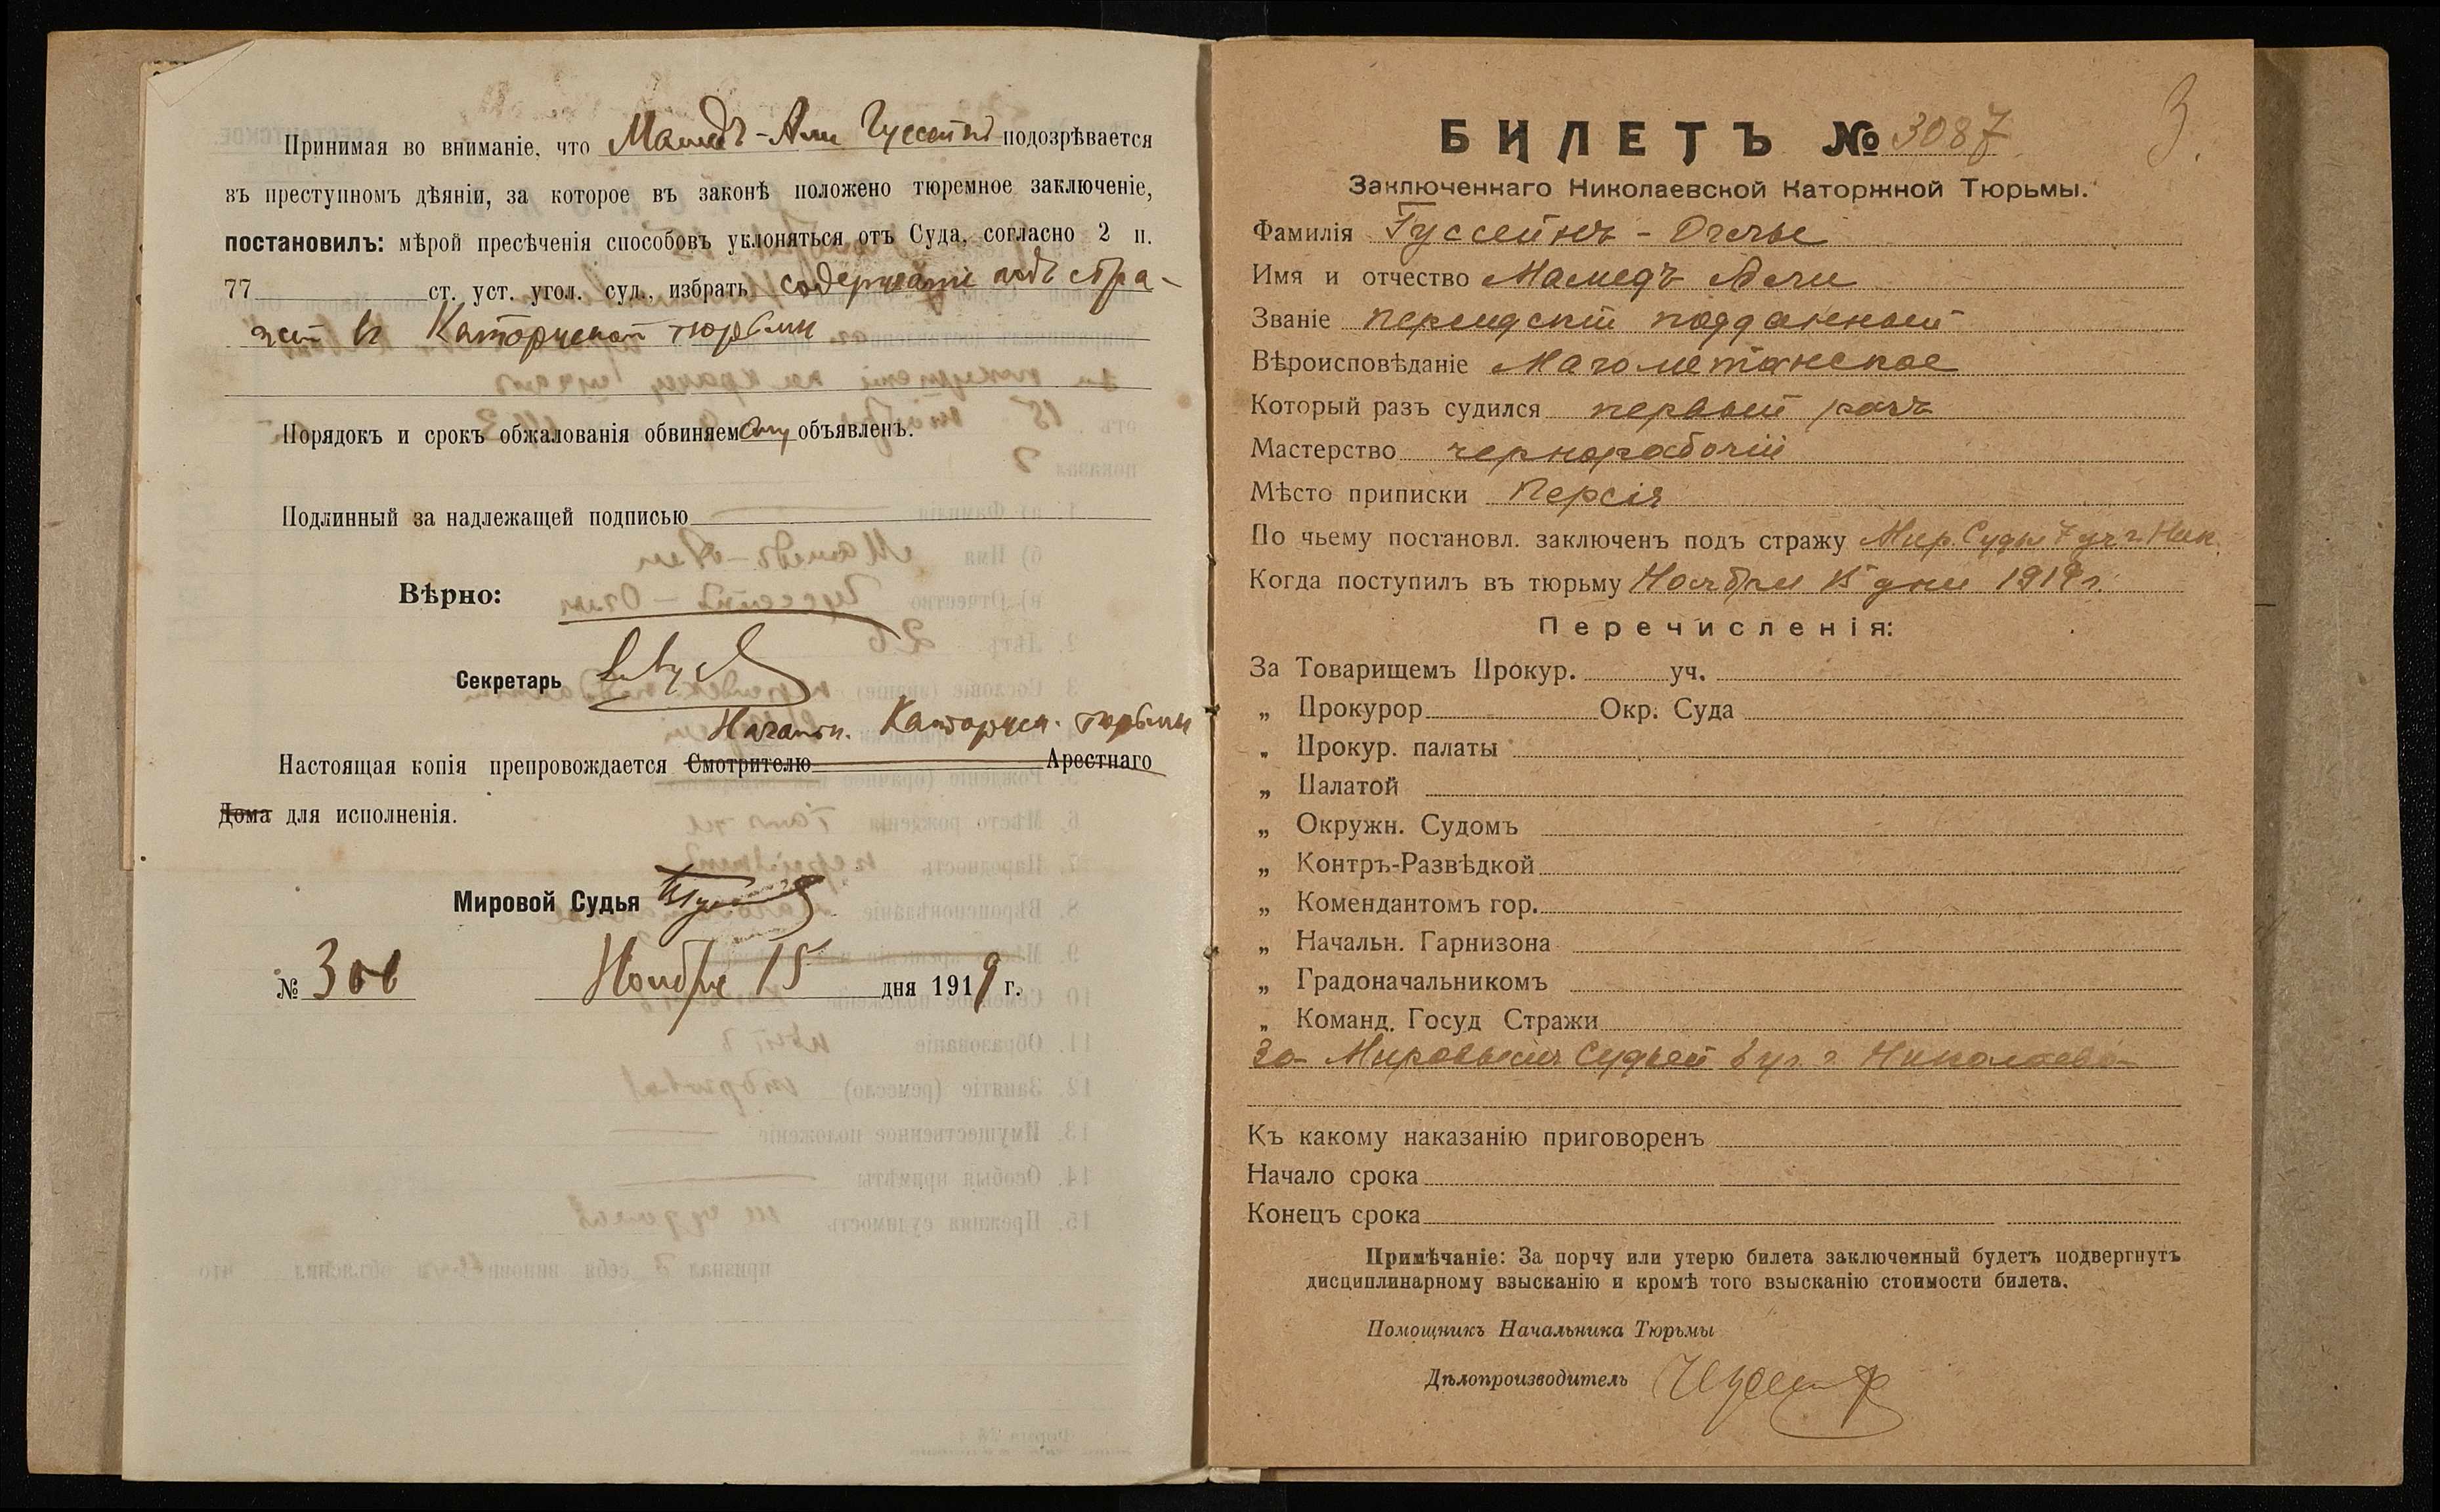 Принимая во вниманіе, что Мамедъ-Али Гуссейнъ подозрѣвается
въ преступномъ дѣяніи, за которое въ законѣ положено тюремное заключеніе,
постановилъ: мѣрой пресѣченія способовъ уклоняться отъ Суда, согласно 2 п.
77 ст. уст. угол. суд., избрать содержаніе подъ стра-
жей въ Каторжной тюрьмѣ
Порядокъ и срокъ обжалованія обвиняемому объявленъ.
Подлинный за надлежащей подписью
Вѣрно:
Секретарь
Начальн. Каторжн. тюрьмы
Настоящая копія препровождается Смотрителю Арестнаго
Дома для исполненія.
Мировой Судья
№ 306 Ноября 15 дня 1919 г.
3.
БИЛЕТЪ № 3087
Заключеннаго Николаевской Каторжной Тюрьмы.
Фамилія Гуссейнъ-Оглы
Имя и отчество Мамедъ Али
Званіе персидскій подданный
Вѣроисповѣданіе Магометанское
Который разъ судился первый разъ
Мастерство чернорабочій
Мѣсто приписки Персія
По чьему постановл. заключенъ подъ стражу Мир. Судьи 7 уч. г. Ник.
Когда поступилъ въ тюрьму Ноября 15 дня 1919 г.
Перечисленія:
За Товарищемъ Прокур. уч.
„ Прокурор Окр. Суда
„ Прокур. палаты
„ Палатой
„ Окружн. Судомъ
„ Контръ-Развѣдкой
„ Комендантомъ гор.
„ Начальн. Гарнизона
„ Градоначальникомъ
„ Команд. Госуд Стражи
За Мировымъ Судьей уч. г. Николаева
Къ какому наказанію приговоренъ
Начало срока
Конецъ срока
Примѣчаніе: За порчу или утерю билета заключенный будетъ подвергнутъ
дисциплинарному взысканію и кромѣ того взысканію стоимости билета.
Помощникъ Начальника Тюрьмы
Дѣлопроизводитель